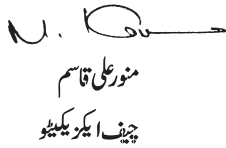 منور علی قاسم
چیف ایگزیکیٹو